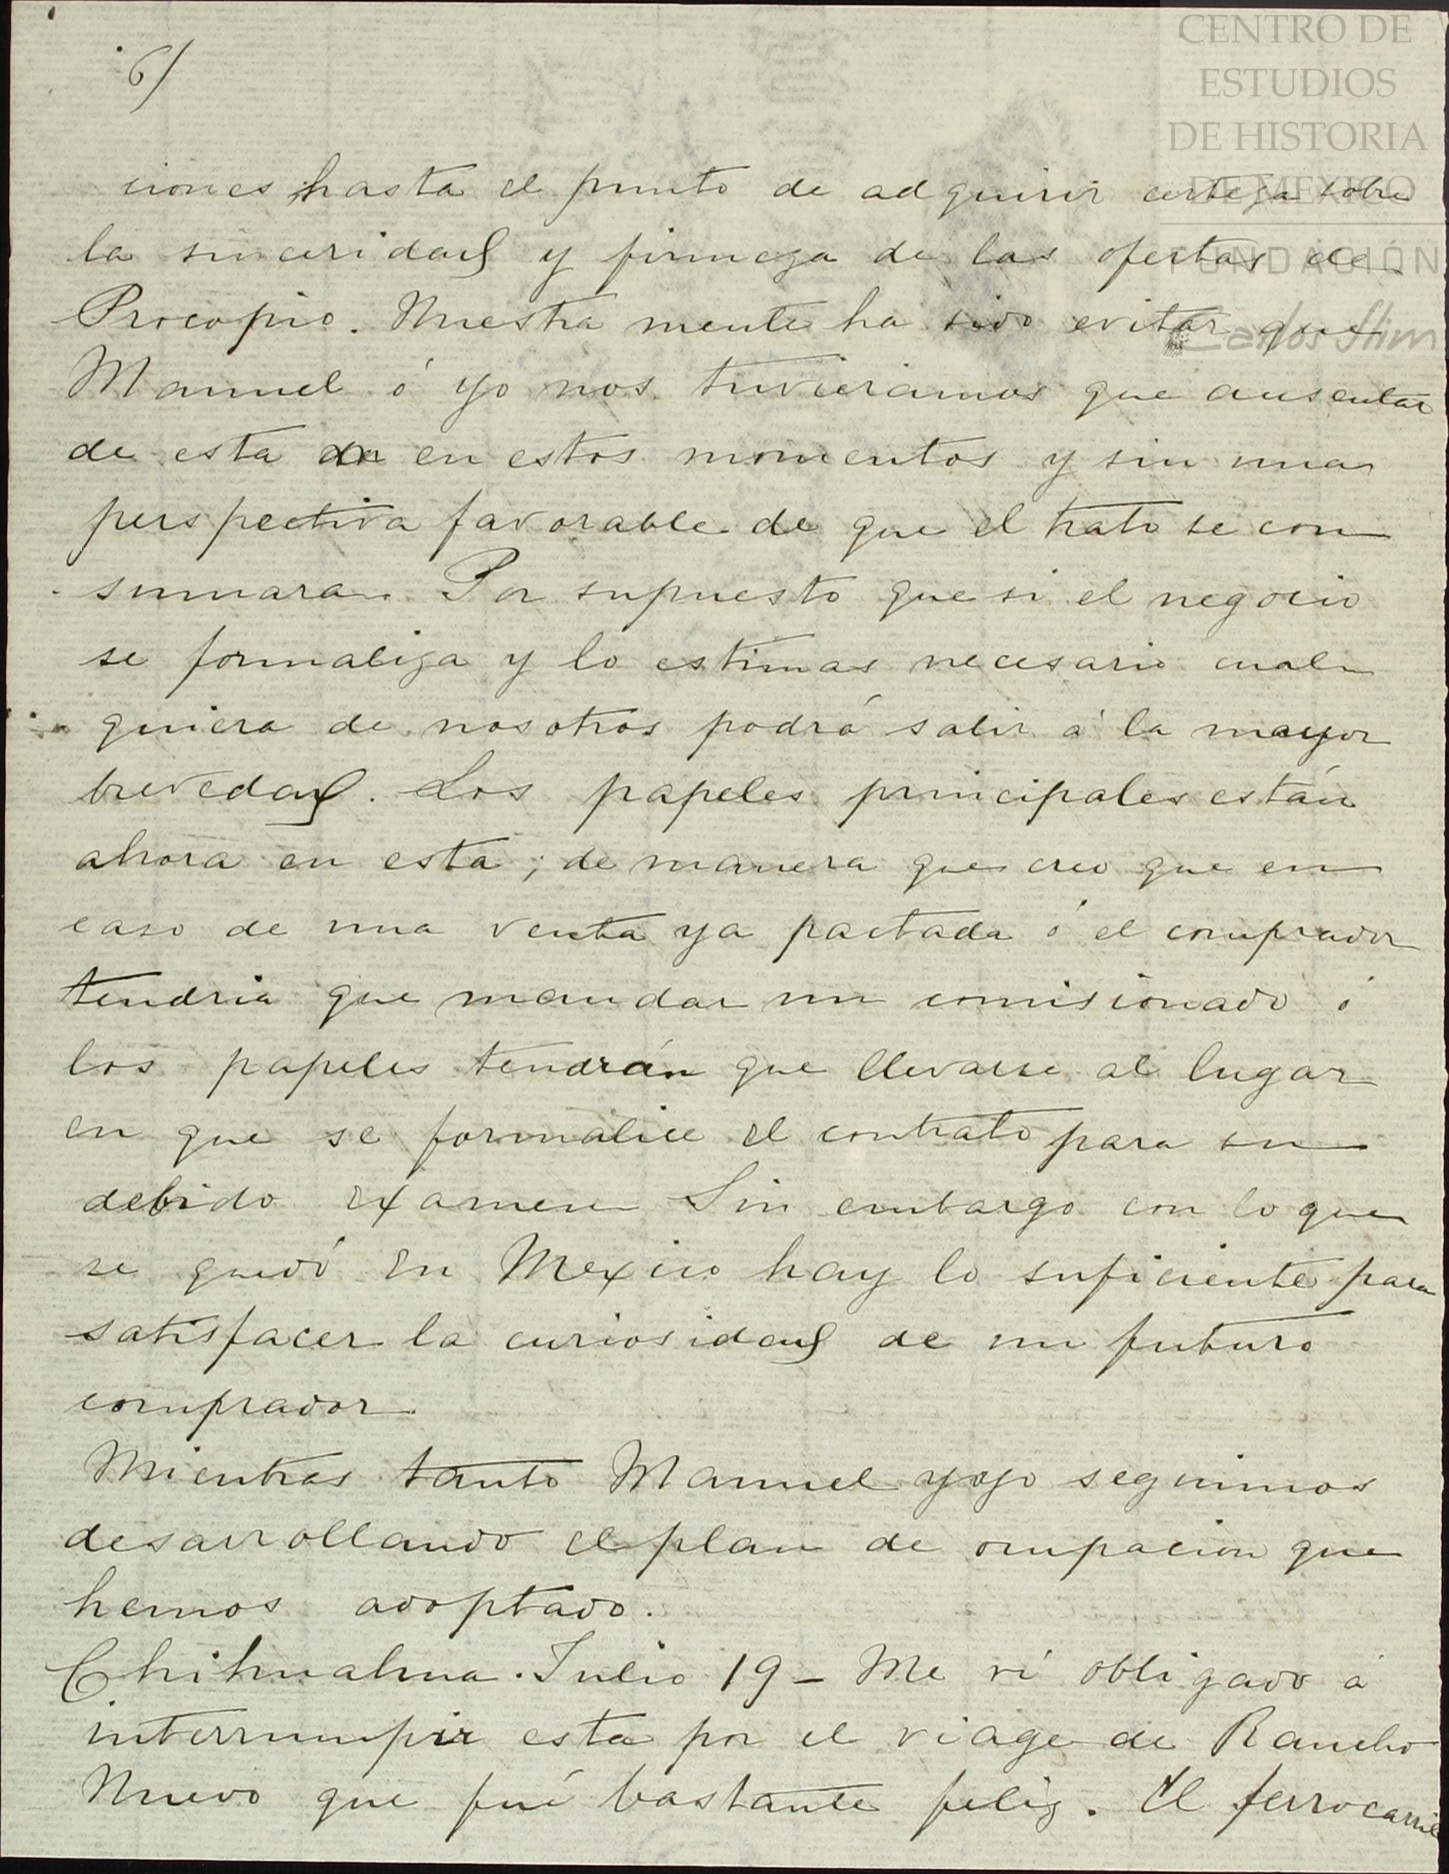 6/
CENTRO DE
ESTUDIOS
DE HISTORIA
DE MEXICO
FUNDACIÓN
Carlos Slim
ciones hasta el punto de adquirir certeza sobre
la sinceridad y firmeza de las ofertas de
Procopio. Nuestra mente ha sido evitar que
Manuel ó yo nos tuvieramos que ausentar
de esta en estos momentos y sin una
perspectiva favorable de que el trato se con
sumara. Por supuesto que si el negocio
se formaliza y lo estimas necesario cual-
quiera de nosotros podrá salir á la mayor
brevedad. Los papeles principales están
ahora en esta; de manera que creo que en
caso de una venta ya pactada ó el comprador
tendria que mandar un comisionado ó
los papeles tendrán que llevarse al lugar
en que se formalice el contrato para su
debido examen Sin embargo con lo que
se quedó en Mexico hay lo suficiente para
satisfacer la curiosidad de un futuro
comprador.
Mientras tanto Manuel y yo seguimos
desarrollando el plan de ocupacion que
hemos adoptado.
Chihuahua. Julio 19 - Me ví obligado á
interrumpir esta por el viage de Rancho
Nuevo que fué bastante feliz. El ferrocarril